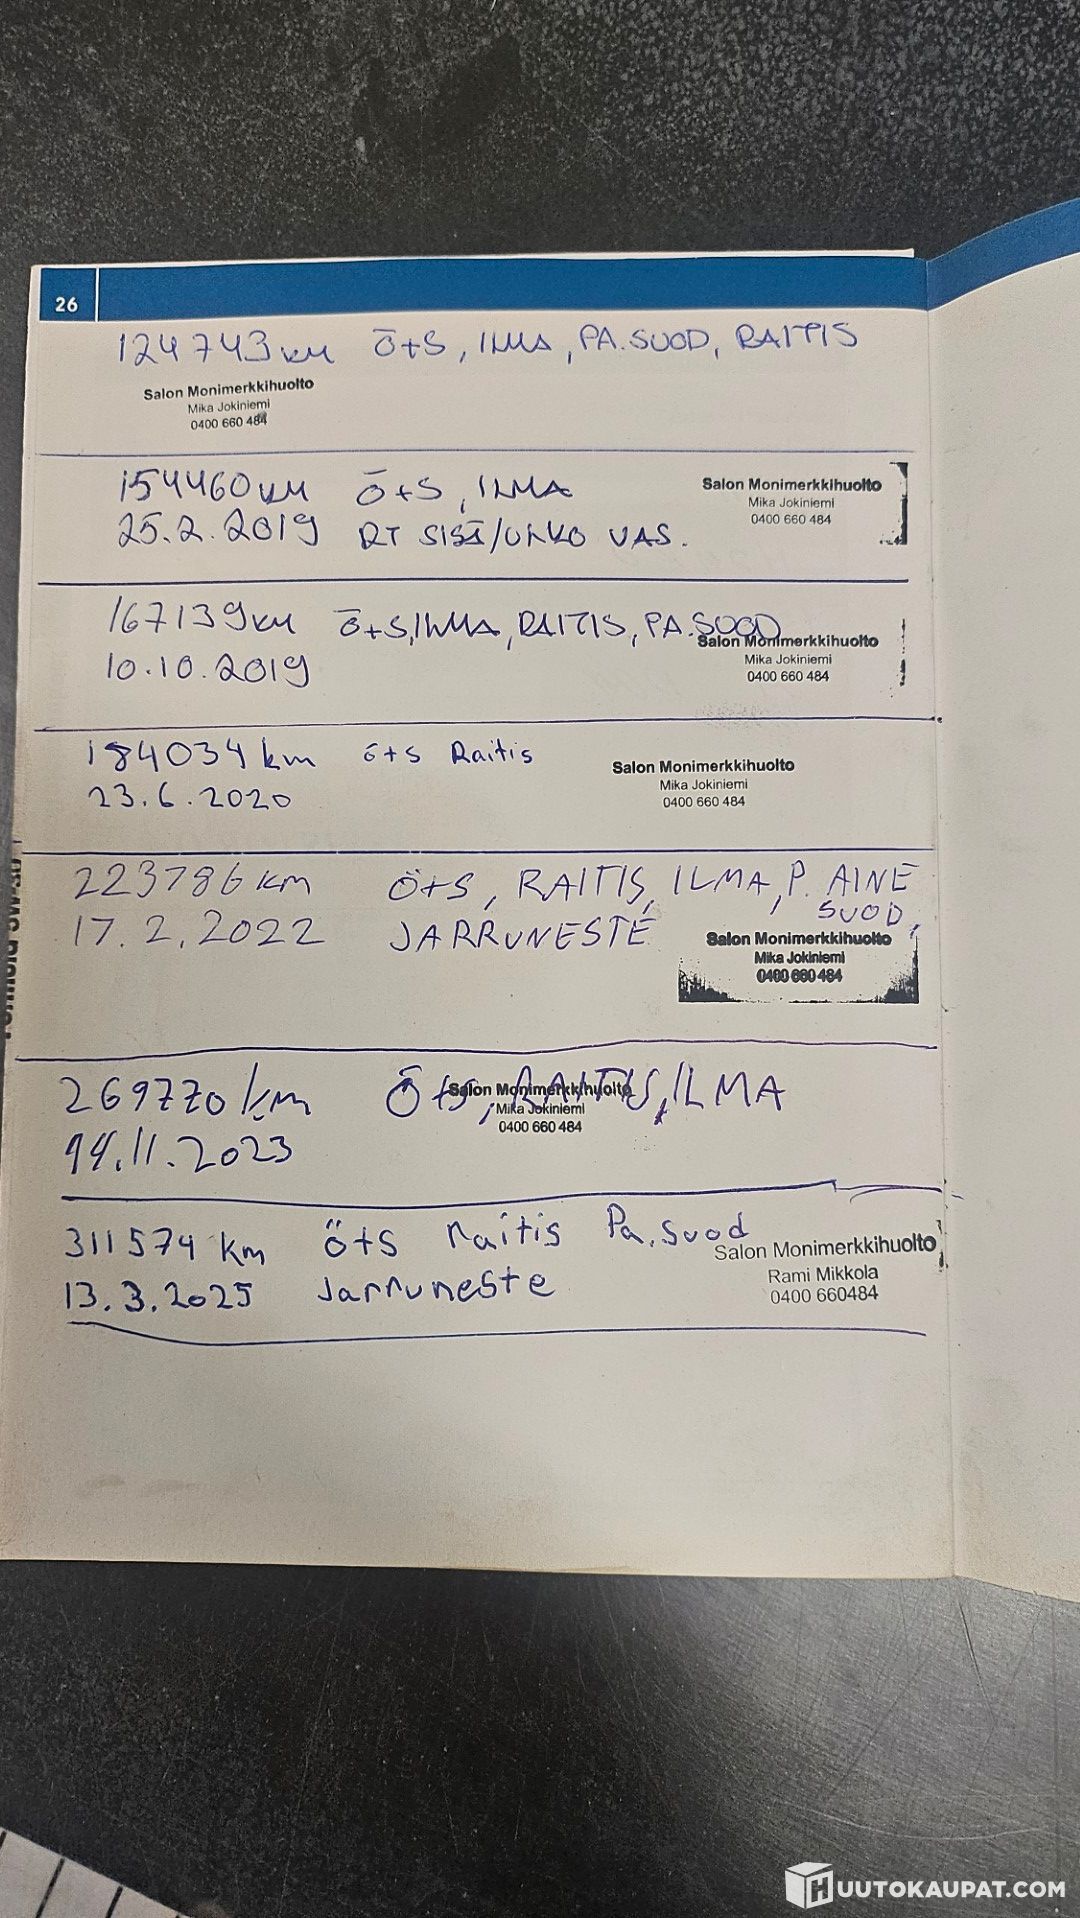 26
124743km Ö+S, ILMA, PA.SUOD, RAITIS
Salon Monimerkkihuolto
Mika Jokiniemi
0400 660 484
154460km Ö+S, ILMA
25.2.2019 RT SISÄ/ULKO VAS.
Salon Monimerkkihuolto
Mika Jokiniemi
0400 660 484
167139km Ö+S, ILMA, RAITIS, PA.SUOD
10.10.2019
Salon Monimerkkihuolto
Mika Jokiniemi
0400 660 484
184034km ö+s Raitis
23.6.2020
Salon Monimerkkihuolto
Mika Jokiniemi
0400 660 484
223786km Ö+S, RAITIS, ILMA, P. AINE
SUOD,
17.2.2022 JARRUNESTE
Salon Monimerkkihuolto
Mika Jokiniemi
0400 660 484
269770km Ö+S, RAITIS, ILMA
14.11.2023
Salon Monimerkkihuolto
Mika Jokiniemi
0400 660 484
311574 km Ö+S Raitis Pa.suod
13.3.2025 Jarruneste
Salon Monimerkkihuolto
Rami Mikkola
0400 660484
HUUTOKAUPAT.COM